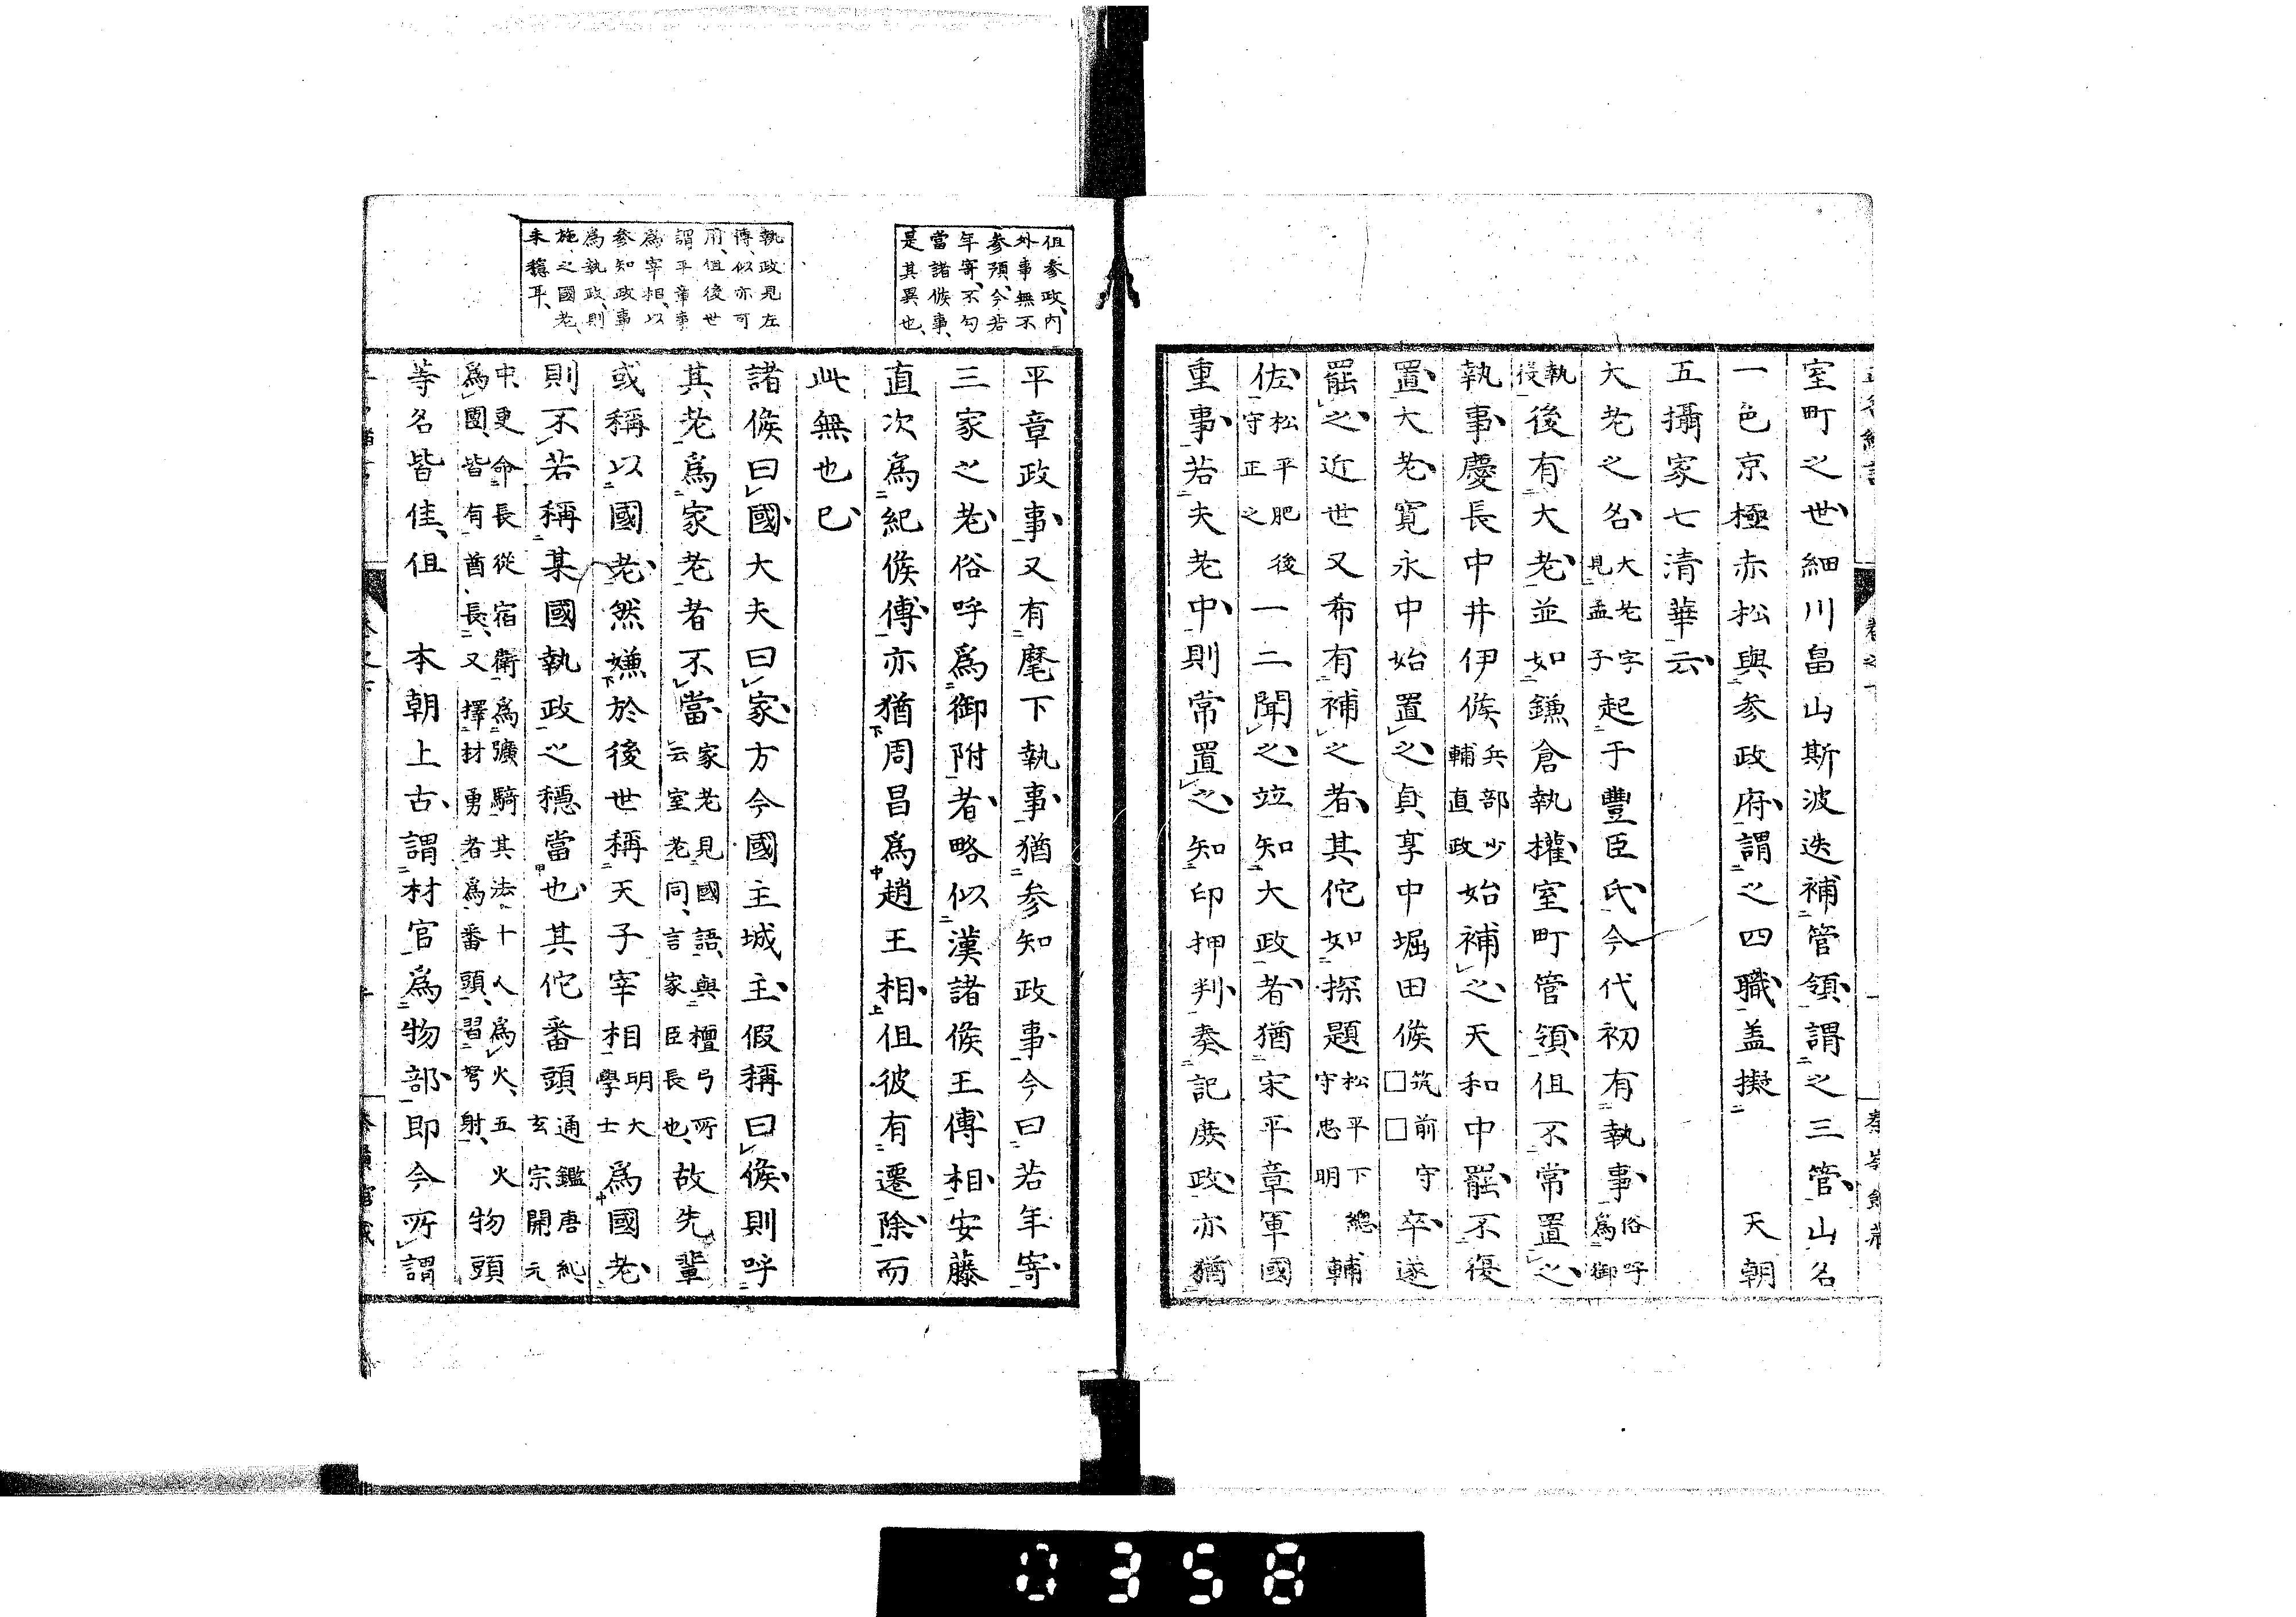 室町之世細川畠山斯波迭補管領謂之三管山名
一色京極赤松與参政府謂之四職盖擬　天朝
五攝家七清華云
大老之名大老字見孟子起于豐臣氏今代初有執事俗呼為御
執役後有大老並如鎌倉執權室町管領但不常置之
執事慶長中井伊侯兵部少輔直政始補之天和中罷不復
置大老寛永中始置之貞享中堀田侯筑前守□□卒遂
罷之近世又希有補之者其佗如探題松平下總守忠明輔
佐松平肥後守正之一二聞之竝知大政者猶宋平章軍國
重事若夫老中則常置之知印押判奏記庶政亦猶
但参政内
外事無不
参預今若
年寄不勾
當諸侯事
是其異也
平章政事又有麾下執事猶参知政事今曰若年寄
三家之老俗呼爲御附者略似漢諸侯王傅相安藤
直次爲紀侯傅亦猶周昌爲趙王相但彼有遷除而
此無也已
執政見左
傳似亦可
用但後世
謂平章事
爲宰相以
参知政事
爲執政則
施之國老
未穩耳
諸侯曰國大夫曰家方今國主城主假稱曰侯則呼
其老爲家老者不當家老見國語與檀弓所云室老同言家臣長也故先輩
或稱以國老然嫌於後世稱天子宰相明大學士爲國老
則不若稱某國執政之穩當也其佗番頭通鑑唐紀玄宗開元
中更命長從宿衛爲彍騎其法十人爲火五火爲團皆有酋長又擇材勇者爲番頭習弩射物頭
等名皆佳但　本朝上古謂材官爲物部即今所謂
0358